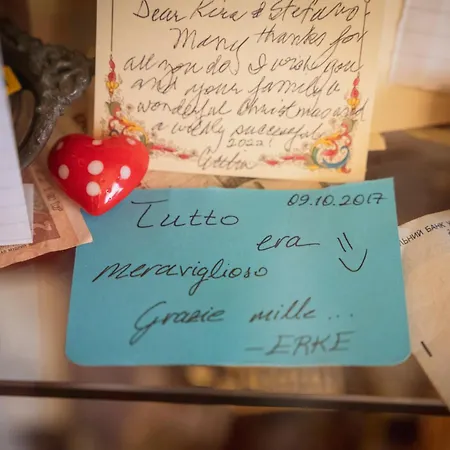 Dear Kira & Stefano
Many thanks for
all you do. I wish you
and your family a
wonderful Christmas and
a wildly successful
2022!
09.10.2017
Tutto
era =)
meraviglioso
Grazie mille...
-ERKE
ЛЬНИЙ БАНК